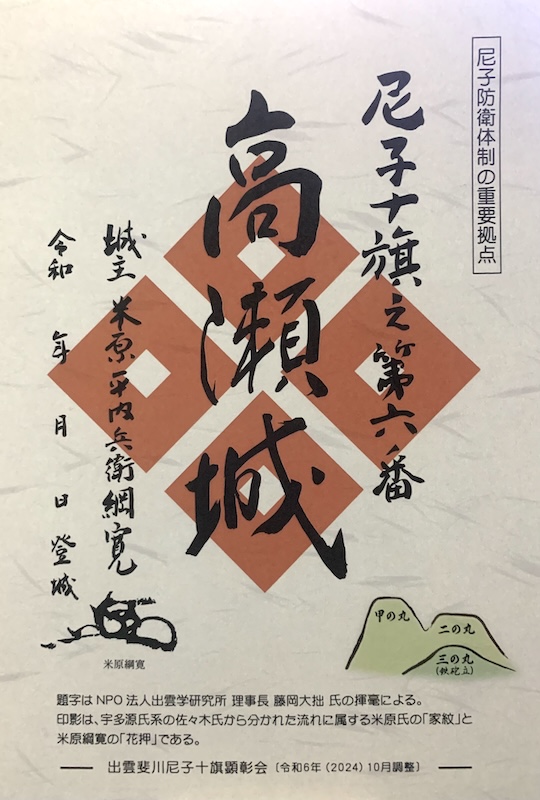 尼子防衛体制の重要拠点
尼子十旗之第六ノ番
高瀬城
城主 米原平内兵衛綱寛
令和 年 月 日 登城
米原綱寛
甲の丸
二の丸
三の丸
(鉄砲立)
題字はNPO法人出雲学研究所 理事長 藤岡大拙 氏の揮毫による。
印影は、宇多源氏系の佐々木氏から分かれた流れに属する米原氏の「家紋」と
米原綱寛の「花押」である。
出雲斐川尼子十旗顕彰会 〔令和6年(2024)10月調整〕